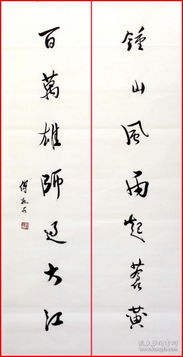 鍾山風雨起蒼黃
百萬雄師過大江